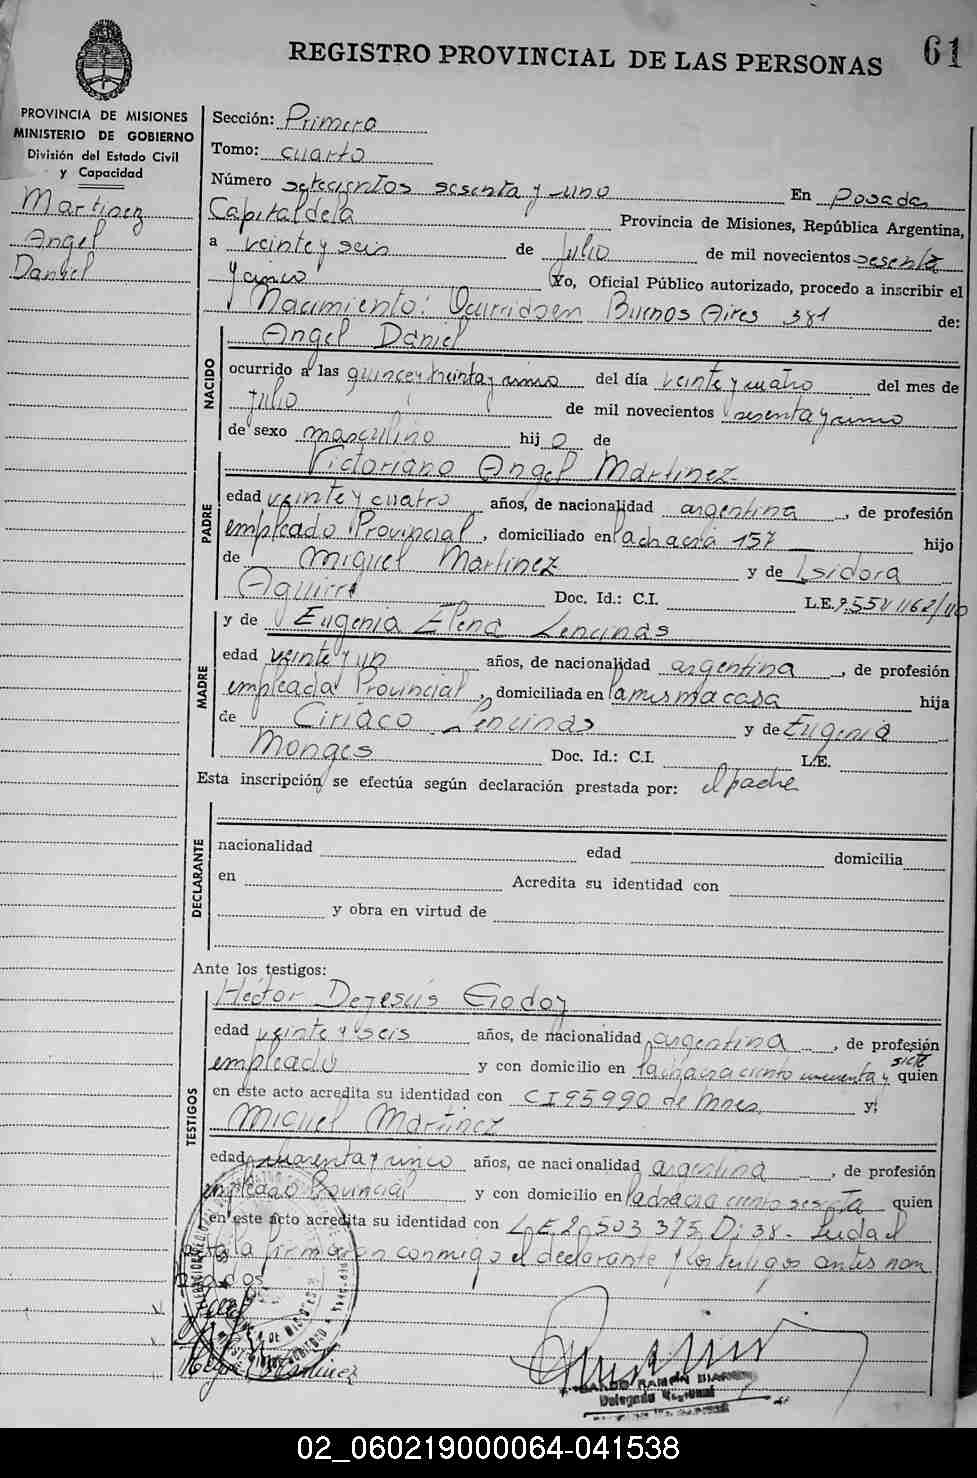 REGISTRO PROVINCIAL DE LAS PERSONAS
61
PROVINCIA DE MISIONES
MINISTERIO DE GOBIERNO
División del Estado Civil
y Capacidad
Martinez
Angel
Daniel
Sección: Primera
Tomo: cuarto
Número setecientos sesenta y uno En Posadas
Capital de la Provincia de Misiones, República Argentina,
a veinte y seis de Julio de mil novecientos sesenta
y cinco Yo, Oficial Público autorizado, procedo a inscribir el
Nacimiento: Ocurrido en Buenos Aires 381 de:
NACIDO
Angel Daniel
ocurrido a las quince y treinta y cinco del día veinte y cuatro del mes de
Julio de mil novecientos sesenta y cinco
de sexo masculino hij o de
PADRE
Victoriano Angel Martinez
edad veinte y cuatro años, de nacionalidad argentina, de profesión
empleado Provincial, domiciliado en la chacra 157 hijo
de Miguel Martinez y de Isidora
Aguirre Doc. Id.: C.I. L.E.
y de Eugenia Elena Lencinas
MADRE
edad veinte y un años, de nacionalidad argentina, de profesión
empleada Provincial, domiciliada en la misma casa hija
de Ciriaco Lencinas y de Eugenia
Monges Doc. Id.: C.I. L.E.
Esta inscripción se efectúa según declaración prestada por: el padre
DECLARANTE
nacionalidad edad domicilia
en Acredita su identidad con
y obra en virtud de
Ante los testigos:
TESTIGOS
Héctor Dejesús Godoy
edad veinte y seis años, de nacionalidad argentina, de profesión
empleado y con domicilio en la chacra ciento cincuenta y siete quien
en este acto acredita su identidad con C I 95990 de Mnes. y:
Miguel Martinez
edad cuarenta y cinco años, de nacionalidad argentina, de profesión
empleado Provincial y con domicilio en la chacra ciento sesenta quien
en este acto acredita su identidad con L E 2.503.375 D: 38. Leida el
acta la firmaron conmigo el declarante y los testigos antes nom
brados
RAMÓN
Delegado
02_060219000064-041538